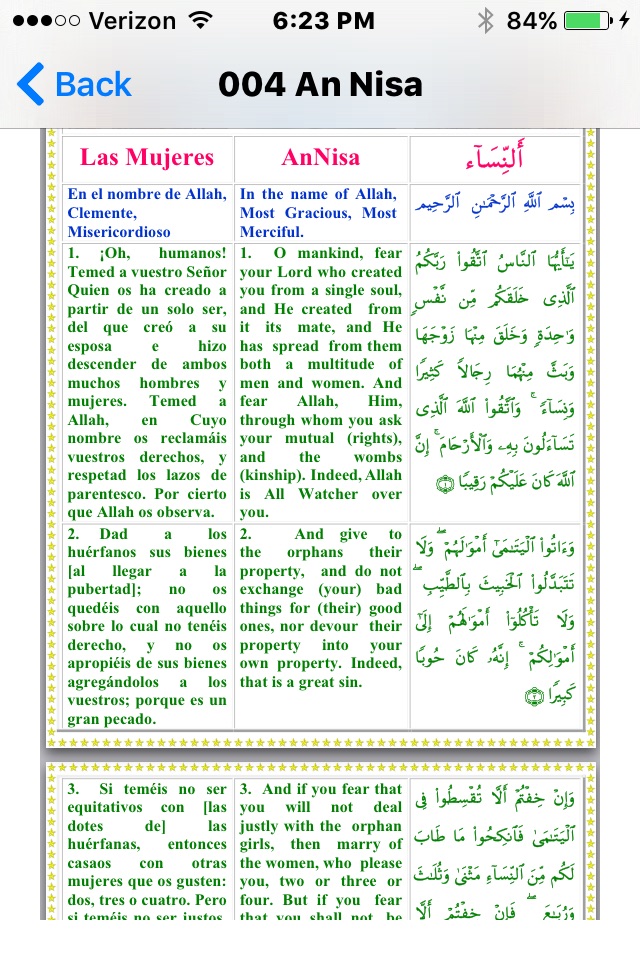 Verizon 6:23 PM 84%
Back 004 An Nisa
Las Mujeres
AnNisa
أَلنِّسَآء
En el nombre de Allah,
Clemente,
Misericordioso
In the name of Allah,
Most Gracious, Most
Merciful.
بِسْمِ ٱللَّهِ ٱلرَّحْمَـٰنِ ٱلرَّحِيمِ
1. ¡Oh, humanos!
Temed a vuestro Señor
Quien os ha creado a
partir de un solo ser,
del que creó a su
esposa e hizo
descender de ambos
muchos hombres y
mujeres. Temed a
Allah, en Cuyo
nombre os reclamáis
vuestros derechos, y
respetad los lazos de
parentesco. Por cierto
que Allah os observa.
1. O mankind, fear
your Lord who created
you from a single soul,
and He created from
it its mate, and He
has spread from them
both a multitude of
men and women. And
fear Allah, Him,
through whom you ask
your mutual (rights),
and the wombs
(kinship). Indeed, Allah
is All Watcher over
you.
يَـٰٓأَيُّهَا ٱلنَّاسُ ٱتَّقُوا۟ رَبَّكُمُ
ٱلَّذِى خَلَقَكُم مِّن نَّفْسٍ
وَٰحِدَةٍ وَخَلَقَ مِنْهَا زَوْجَهَا
وَبَثَّ مِنْهُمَا رِجَالًا كَثِيرًا
وَنِسَآءً ۚ وَٱتَّقُوا۟ ٱللَّهَ ٱلَّذِى
تَسَآءَلُونَ بِهِۦ وَٱلْأَرْحَامَ ۚ إِنَّ
ٱللَّهَ كَانَ عَلَيْكُمْ رَقِيبًا ١
2. Dad a los
huérfanos sus bienes
[al llegar a la
pubertad]; no os
quedéis con aquello
sobre lo cual no tenéis
derecho, y no os
apropiéis de sus bienes
agregándolos a los
vuestros; porque es un
gran pecado.
2. And give to
the orphans their
property, and do not
exchange (your) bad
things for (their) good
ones, nor devour their
property into your
own property. Indeed,
that is a great sin.
وَءَاتُوا۟ ٱلْيَتَـٰمَىٰٓ أَمْوَٰلَهُمْ ۖ وَلَا
تَتَبَدَّلُوا۟ ٱلْخَبِيثَ بِٱلطَّيِّبِ ۖ
وَلَا تَأْكُلُوٓا۟ أَمْوَٰلَهُمْ إِلَىٰٓ
أَمْوَٰلِكُمْ ۚ إِنَّهُۥ كَانَ حُوبًا
كَبِيرًا ٢
3. Si teméis no ser
equitativos con [las
dotes de] las
huérfanas, entonces
casaos con otras
mujeres que os gusten:
dos, tres o cuatro. Pero
si teméis no ser justos,
3. And if you fear that
you will not deal
justly with the orphan
girls, then marry of
the women, who please
you, two or three or
four. But if you fear
that you shall not be
وَإِنْ خِفْتُمْ أَلَّا تُقْسِطُوا۟ فِى
ٱلْيَتَـٰمَىٰ فَٱنكِحُوا۟ مَا طَابَ
لَكُم مِّنَ ٱلنِّسَآءِ مَثْنَىٰ وَثُلَـٰثَ
وَرُبَـٰعَ ۖ فَإِنْ خِفْتُمْ أَلَّا